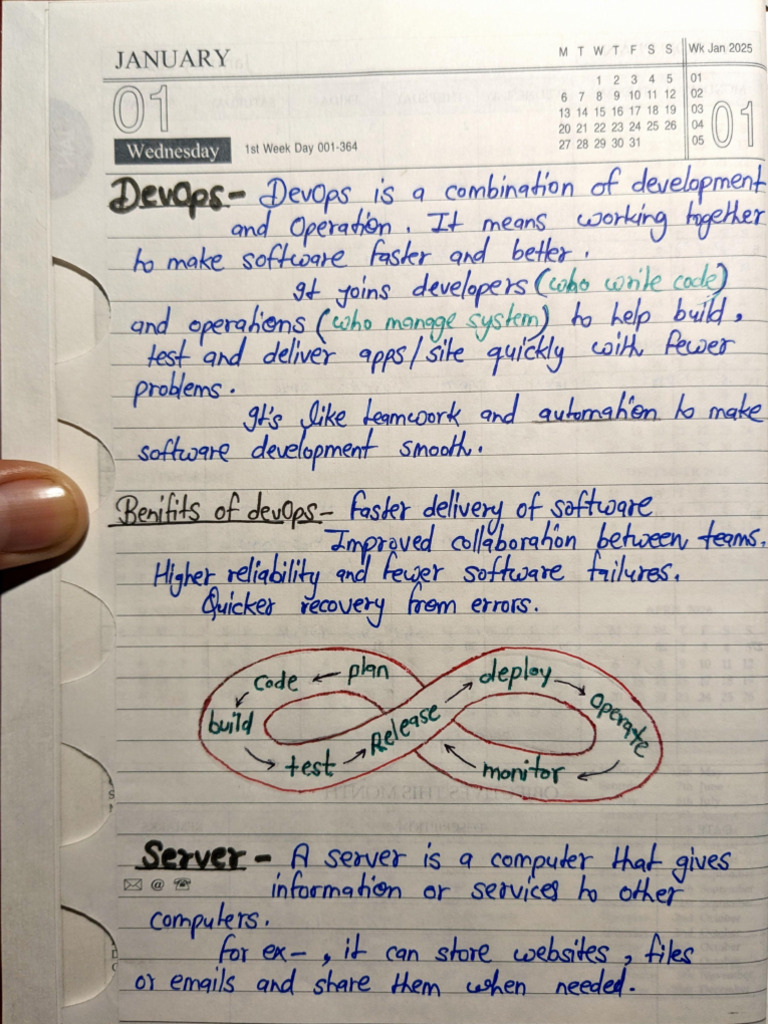 JANUARY
M T W T F S S
Wk Jan 2025
1 2 3 4 5
6 7 8 9 10 11 12
13 14 15 16 17 18 19
20 21 22 23 24 25 26
27 28 29 30 31
01
02
03
04
05
01
01
Wednesday
1st Week Day 001-364
DevOps - DevOps is a combination of development
and Operation. It means working together
to make software faster and better.
It joins developers (who write code)
and operations (who manage system) to help build,
test and deliver apps/site quickly with fewer
problems.
It's like teamwork and automation to make
software development smooth.
Benifits of devOps - Faster delivery of software
Improved collaboration between teams.
Higher reliability and fewer software failures.
Quicker recovery from errors.
code ← plan
deploy
build
Release
Operate
test
monitor
Server - A server is a computer that gives
information or services to other
computers.
for ex - , it can store websites, files
or emails and share them when needed.